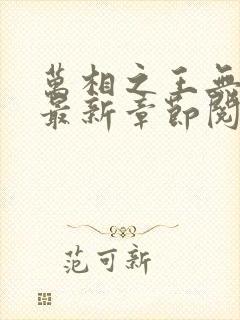 萬相之王無
最新章節閱
范可新